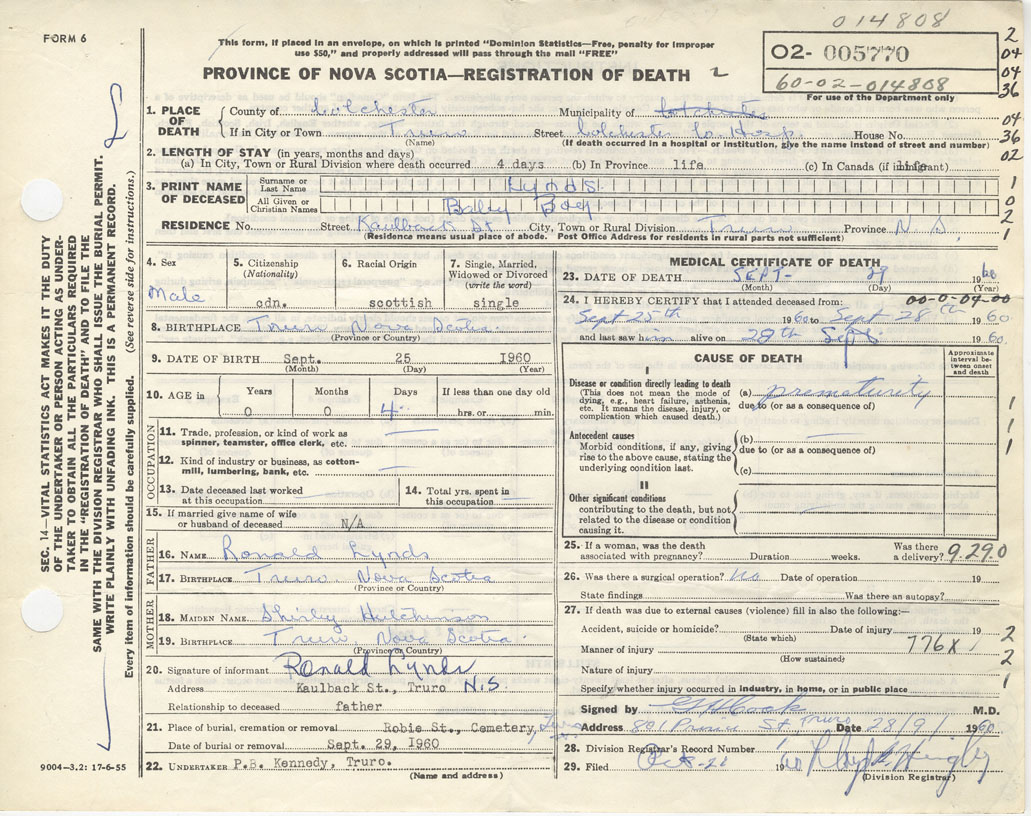 014808
FORM 6
This form, if placed in an envelope, on which is printed "Dominion Statistics—Free, penalty for improper
use $50," and properly addressed will pass through the mail "FREE"
PROVINCE OF NOVA SCOTIA—REGISTRATION OF DEATH 2
02- 005770
60-02-014808
For use of the Department only
2
04
04
36
04
36
02
1
0
2
1
1
1
1
2
2
1
SEC. 14—VITAL STATISTICS ACT MAKES IT THE DUTY
OF THE UNDERTAKER OR PERSON ACTING AS UNDER-
TAKER TO OBTAIN ALL THE PARTICULARS REQUIRED
IN THE "REGISTRATION OF DEATH" AND TO FILE THE
SAME WITH THE DIVISION REGISTRAR WHO SHALL ISSUE THE BURIAL PERMIT.
WRITE PLAINLY WITH UNFADING INK. THIS IS A PERMANENT RECORD.
Every item of information should be carefully supplied. (See reverse side for instructions.)
1. PLACE OF DEATH County of Colchester Municipality of Colchester
If in City or Town Truro Street Colchester Co Hosp. House No.
(Name) (If death occurred in a hospital or institution, give the name instead of street and number)
2. LENGTH OF STAY (in years, months and days)
(a) In City, Town or Rural Division where death occurred 4 days (b) In Province life (c) In Canada (if immigrant) life
3. PRINT NAME OF DECEASED Surname or Last Name Lynds
All Given or Christian Names Baby Boy
RESIDENCE No. Street Kaulback St City, Town or Rural Division Truro Province N.S.
(Residence means usual place of abode. Post Office Address for residents in rural parts not sufficient)
4. Sex Male
5. Citizenship (Nationality) cdn.
6. Racial Origin scottish
7. Single, Married, Widowed or Divorced (write the word) single
8. BIRTHPLACE Truro Nova Scotia
(Province or Country)
9. DATE OF BIRTH Sept. 25 1960
(Month) (Day) (Year)
10. AGE in Years Months Days If less than one day old
0 0 4 hrs. or min.
OCCUPATION
11. Trade, profession, or kind of work as
spinner, teamster, office clerk, etc.
12. Kind of industry or business, as cotton-
mill, lumbering, bank, etc.
13. Date deceased last worked
at this occupation
14. Total yrs. spent in
this occupation
15. If married give name of wife
or husband of deceased N/A
FATHER
16. NAME Ronald Lynds
17. BIRTHPLACE Truro Nova Scotia
(Province or Country)
MOTHER
18. MAIDEN NAME Shirley Hutchinson
19. BIRTHPLACE Truro, Nova Scotia
(Province or Country)
20. Signature of informant Ronald Lynds
Address Kaulback St., Truro N.S.
Relationship to deceased father
21. Place of burial, cremation or removal Robie St., Cemetery,
Date of burial or removal Sept. 29, 1960
22. UNDERTAKER P.B. Kennedy, Truro.
(Name and address)
9004-3.2: 17-6-55
MEDICAL CERTIFICATE OF DEATH
23. DATE OF DEATH SEPT- 28 1960
(Month) (Day) (Year)
24. I HEREBY CERTIFY that I attended deceased from: 00-0-04-00
Sept 25th 1960 to Sept 28th 1960
and last saw him alive on 28th Sept 1960.
CAUSE OF DEATH
Approximate interval between onset and death
I
Disease or condition directly leading to death
(This does not mean the mode of
dying, e.g., heart failure, asthenia,
etc. It means the disease, injury, or
complication which caused death.)
(a) prematurity
due to (or as a consequence of)
Antecedent causes
Morbid conditions, if any, giving
rise to the above cause, stating the
underlying condition last.
(b)
due to (or as a consequence of)
(c)
II
Other significant conditions
contributing to the death, but not
related to the disease or condition
causing it.
25. If a woman, was the death
associated with pregnancy? Duration weeks. Was there a delivery? 9.29.0
26. Was there a surgical operation? No Date of operation 19
State findings Was there an autopsy?
27. If death was due to external causes (violence) fill in also the following:—
Accident, suicide or homicide? Date of injury 19
(State which)
Manner of injury 776X
(How sustained)
Nature of injury
Specify whether injury occurred in industry, in home, or in public place
Signed by M.D.
Address 891 Prince St Truro Date 28/9/ 1960
28. Division Registrar's Record Number
29. Filed 19
(Division Registrar)